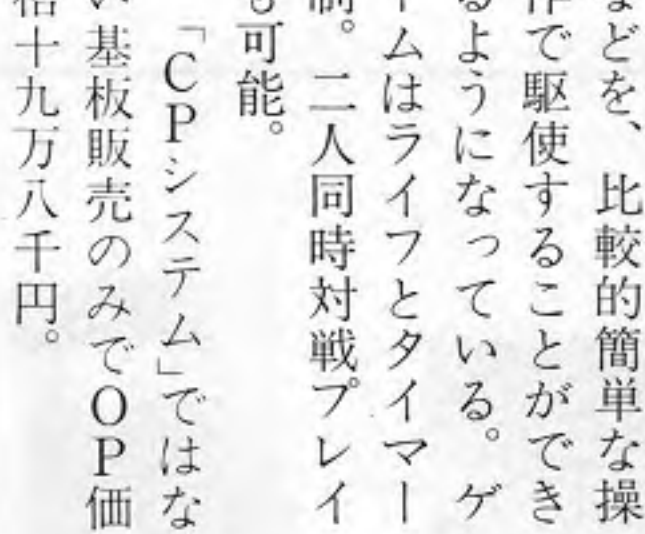 などを、比較的簡単な操
作で駆使することができ
るようになっている。ゲ
ームはライフとタイマー
制。二人同時対戦プレイ
も可能。
「CPシステム」ではな
い基板販売のみでOP価
格十九万八千円。